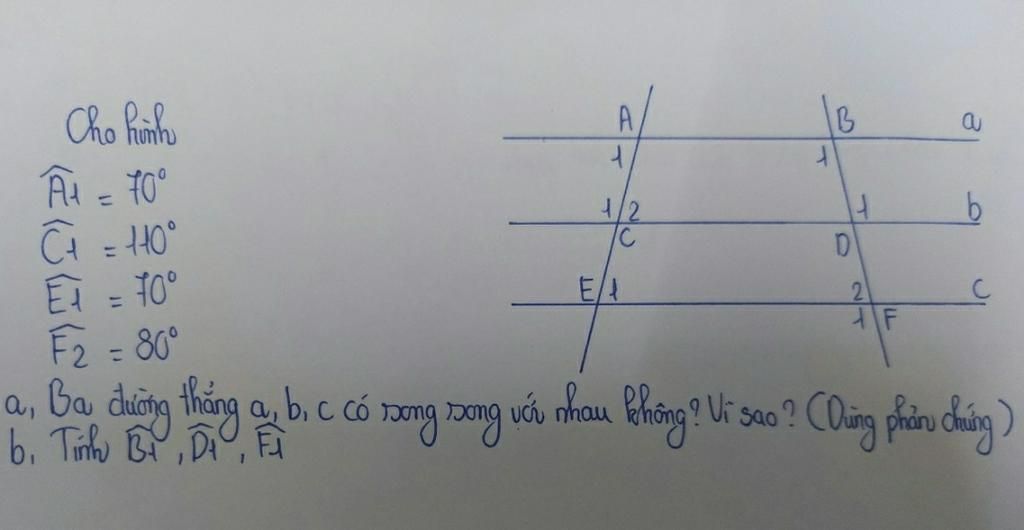 Cho hình
Â1 = 70°
Ĉ1 = 110°
Ê1 = 70°
F̂2 = 80°
A
B
a
1
1
1
2
1
b
C
D
E
1
2
c
1
F
a, Ba đường thẳng a, b, c có song song với nhau không? Vì sao? (Dùng phản chứng)
b, Tính B̂1, D̂1, F̂1